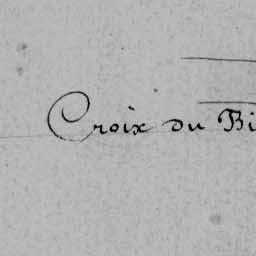 Croix du Bi